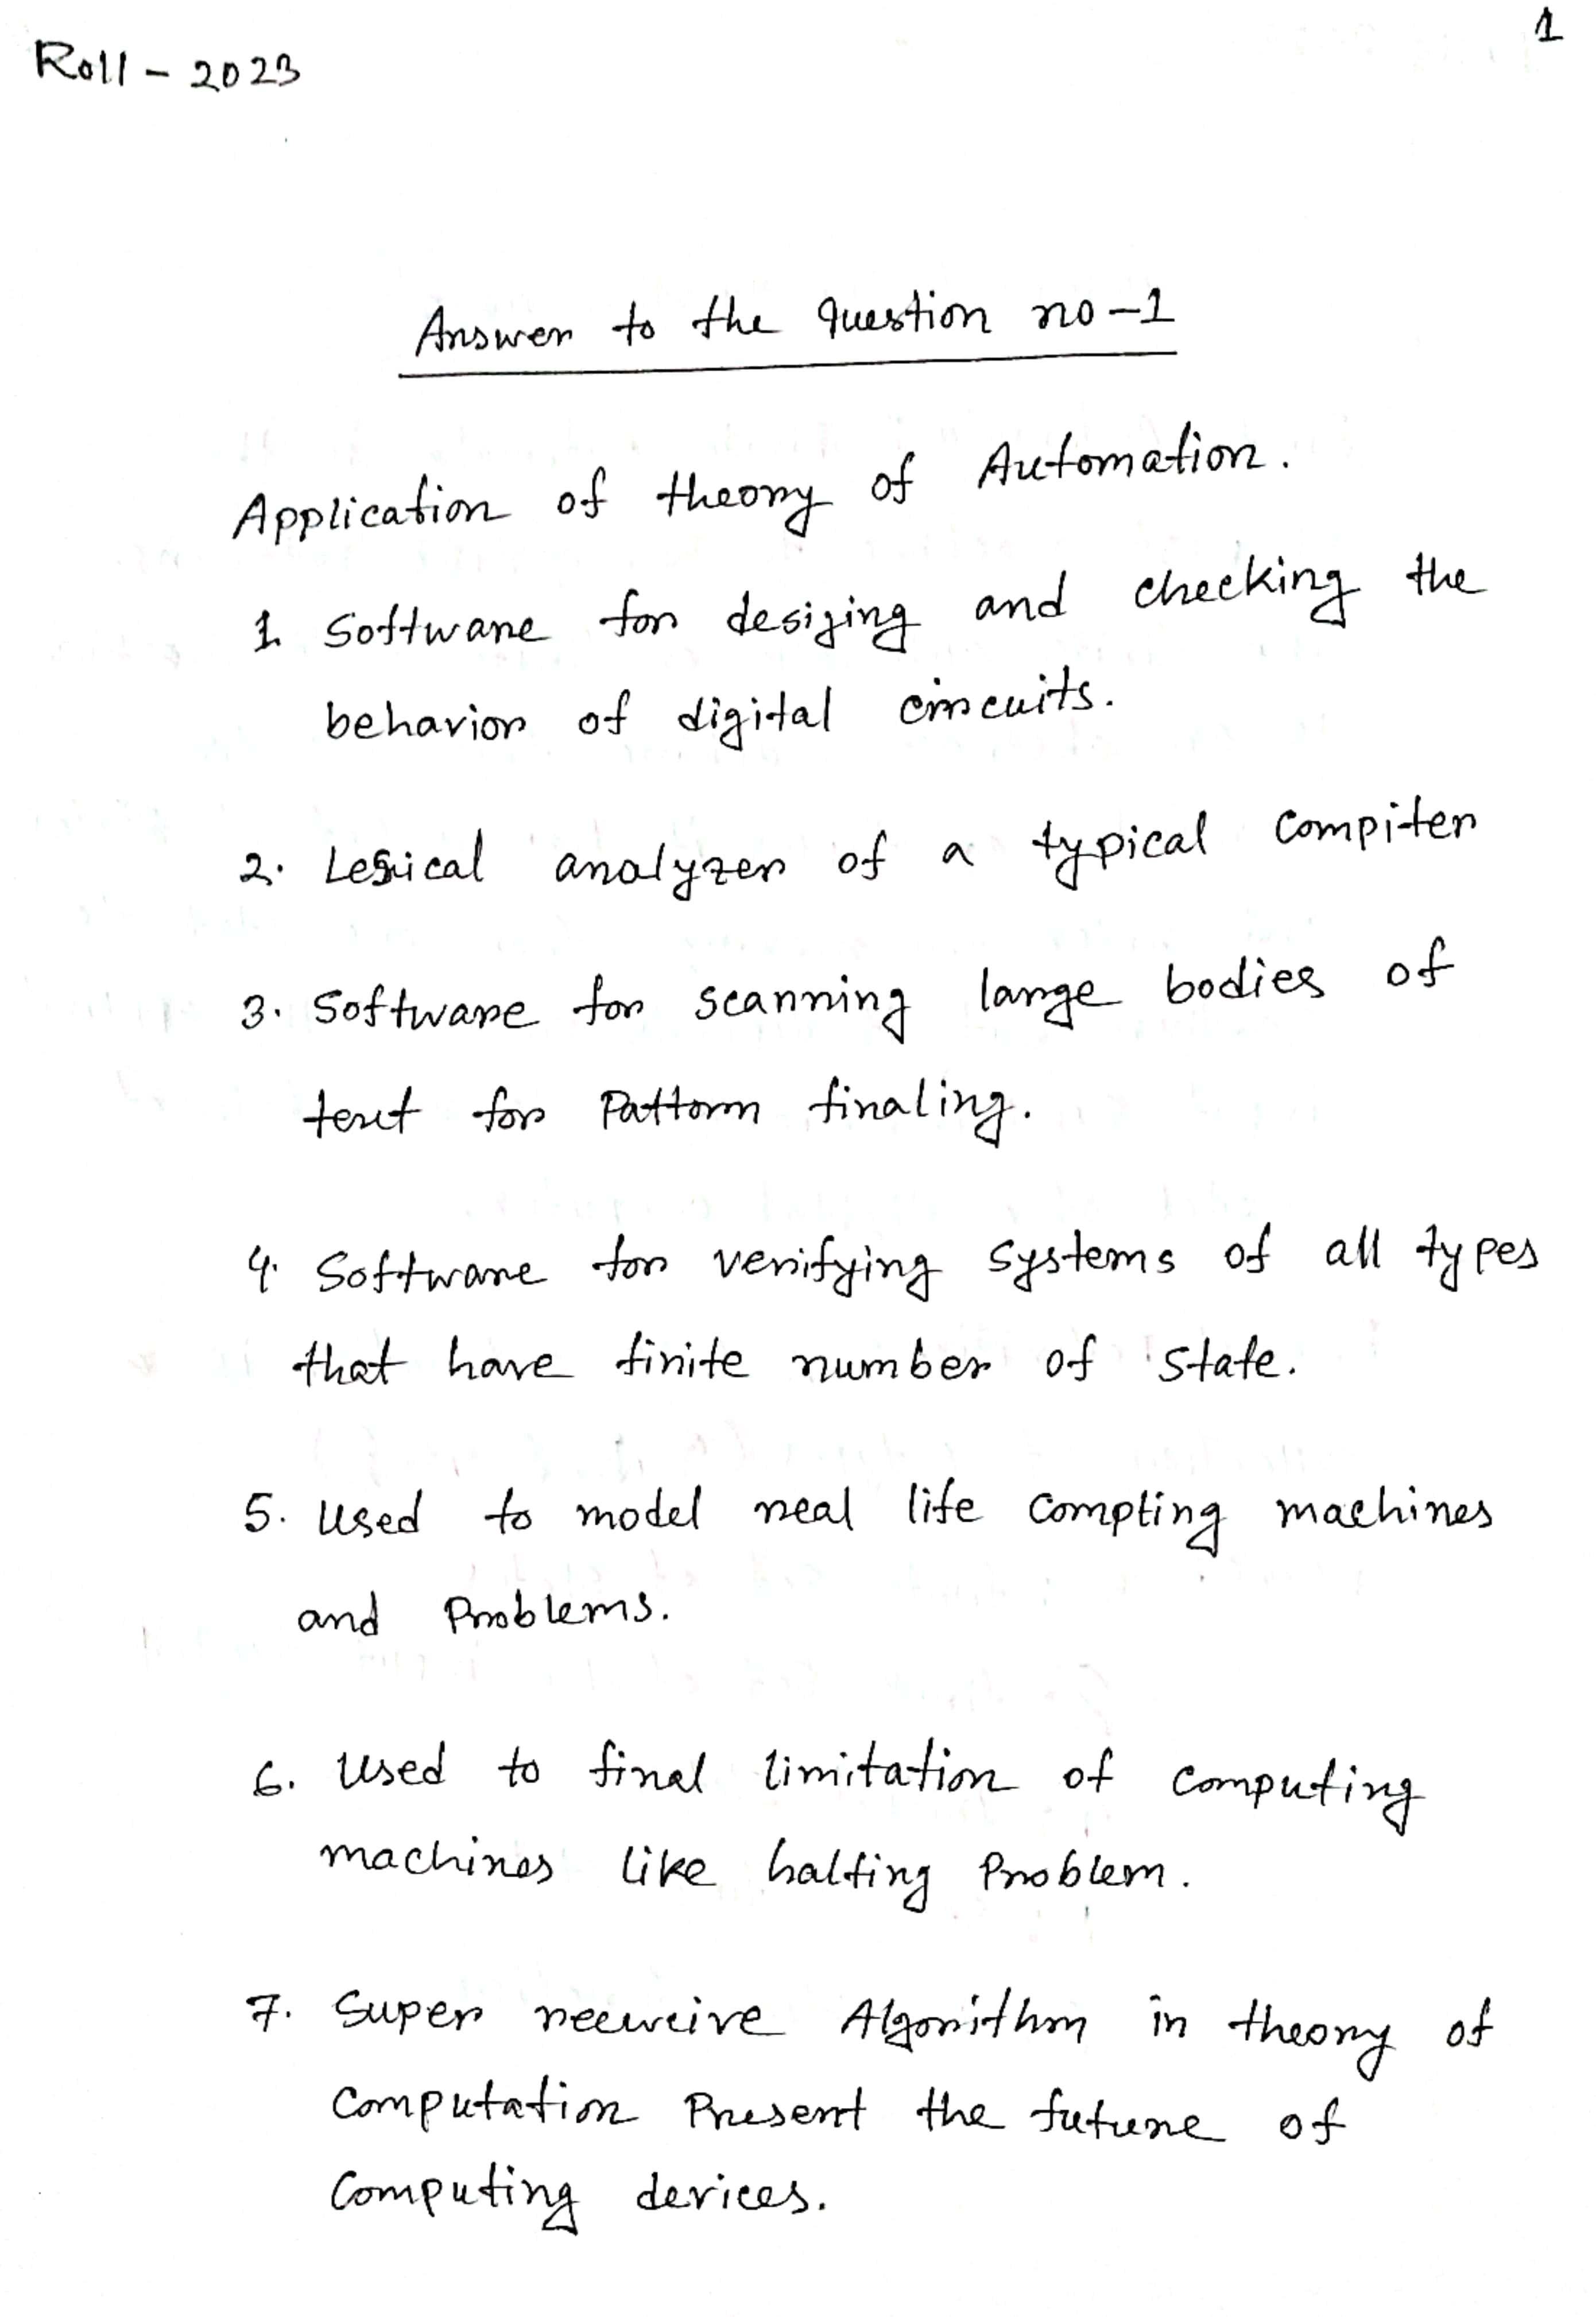 1
Roll - 2023
Answer to the Question no-1
Application of theory of Automation.
1. Software for desiging and checking the
behavior of digital circuits.
2. Lexical analyzer of a typical Compiter
3. Software for scanning large bodies of
text for Pattorn finaling.
4. Software for verifying systems of all types
that have finite number of state.
5. Used to model real life Compting machines
and Problems.
6. Used to final limitation of Computing
machines like halting Problem.
7. Super recurcive Algorithm in theory of
Computation Present the future of
Computing devices.